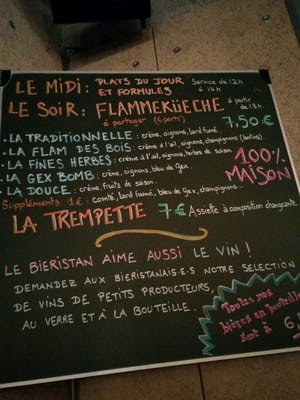 LE MIDI: PLATS DU JOUR ET FORMULES Service de 12h à 14h
LE SOIR: FLAMMEKÜECHE à partir de 18h.
à partager (6 parts) 7,50€
• LA TRADITIONNELLE: crème, oignons, lard fumé.
• LA FLAM DES BOIS: crème à l'ail, oignons, champignons
• LA FINES HERBES: crème à l'ail, oignons, herbes de saison.
• LA GEX BOMB: crème, oignons, bleu de Gex
• LA DOUCE: crème, fruits de saison.
100% MAISON
Suppléments 1€: comté, lard fumé, bleu de Gex, champignons...
LA TREMPETTE 7€ Assiette à composition changeante
LE BIERISTAN AIME AUSSI LE VIN!
DEMANDEZ AUX BIERISTANAIS·E·S NOTRE SELECTION
DE VINS DE PETITS PRODUCTEURS,
AU VERRE ET À LA BOUTEILLE.
Toutes nos
bières en bouteille
sont à 6,